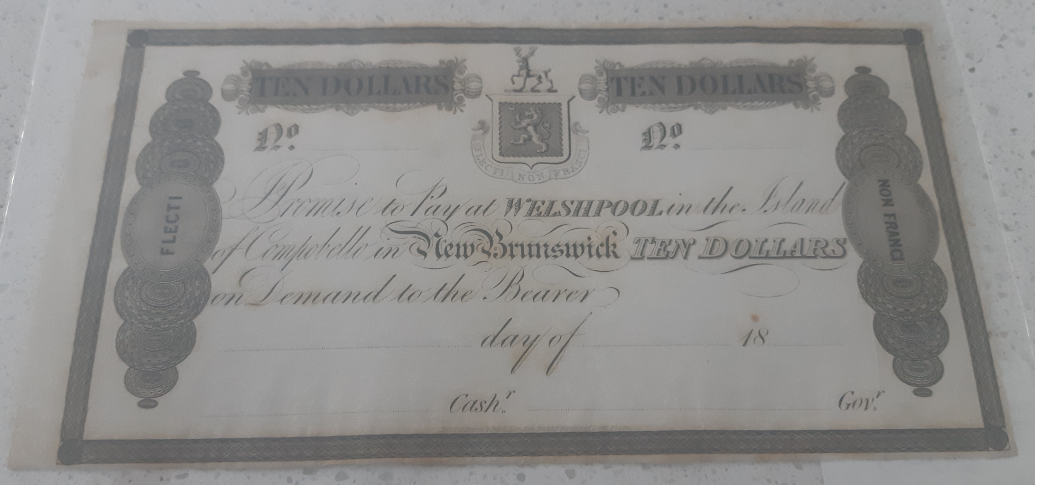 TEN DOLLARS TEN DOLLARS
No. No.
FLECTI NON FRANGI
I Promise to Pay at WELSHPOOL in the Island
of Campobello in New Brunswick TEN DOLLARS
on Demand to the Bearer
day of 18
Cashr. Govr.
FLECTI
NON FRANGI